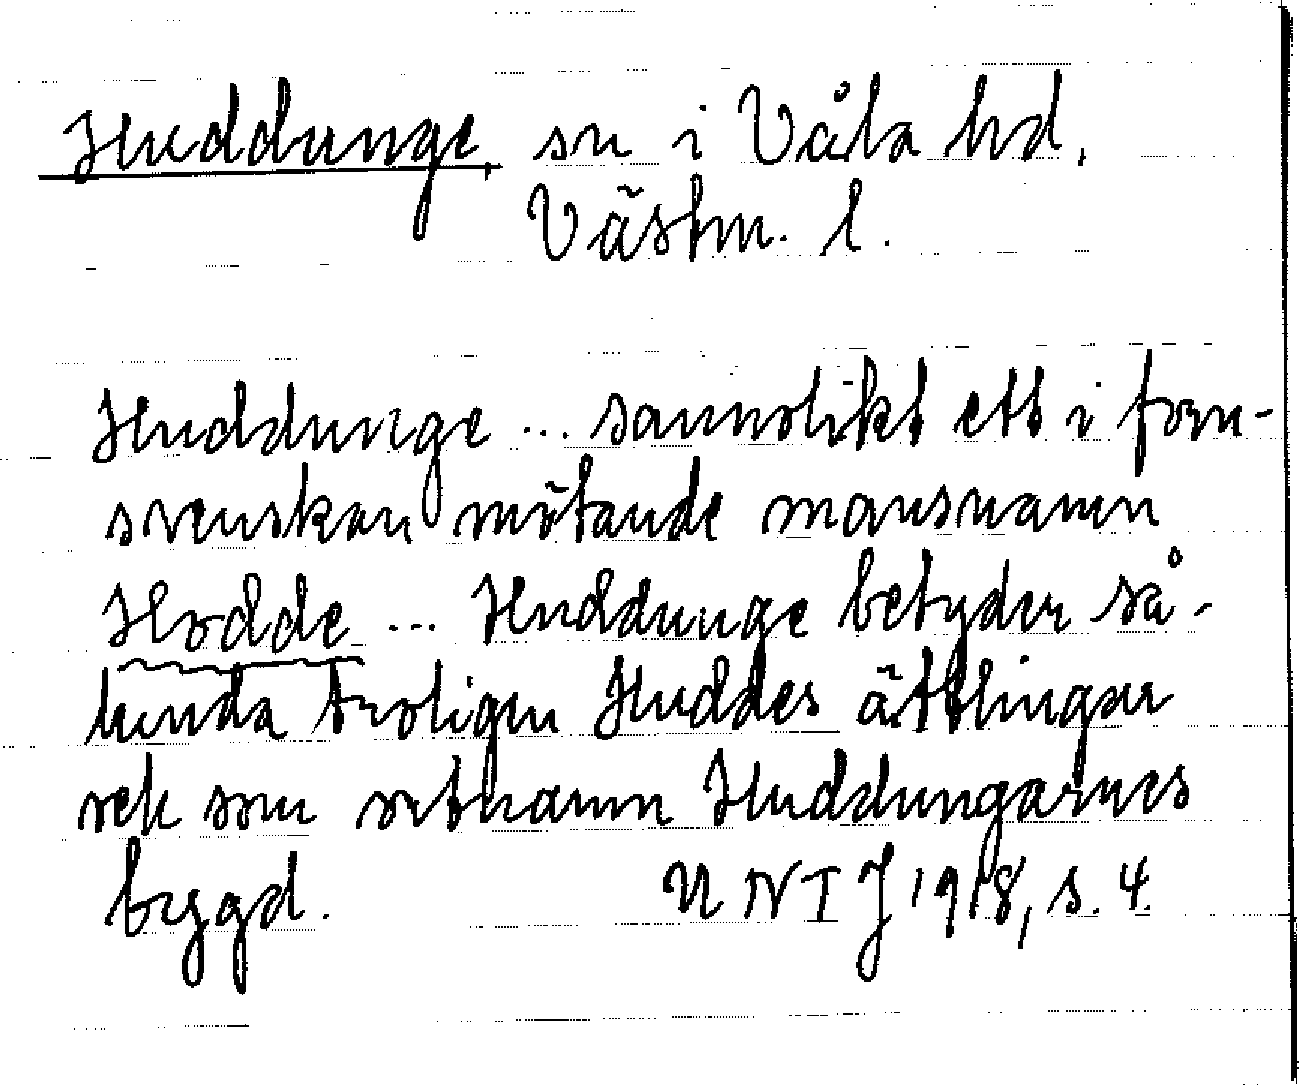 Huddunge, sn i Våla hd,
Västm. l.
Huddunge ... sannolikt ett i forn-
svenskan mötande mansnamn
Hodde ... Huddunge betyder så-
lunda troligen Huddes ättlingar
och som ortnamn Huddungarnes
bygd. UNTJ 1918, s. 4.